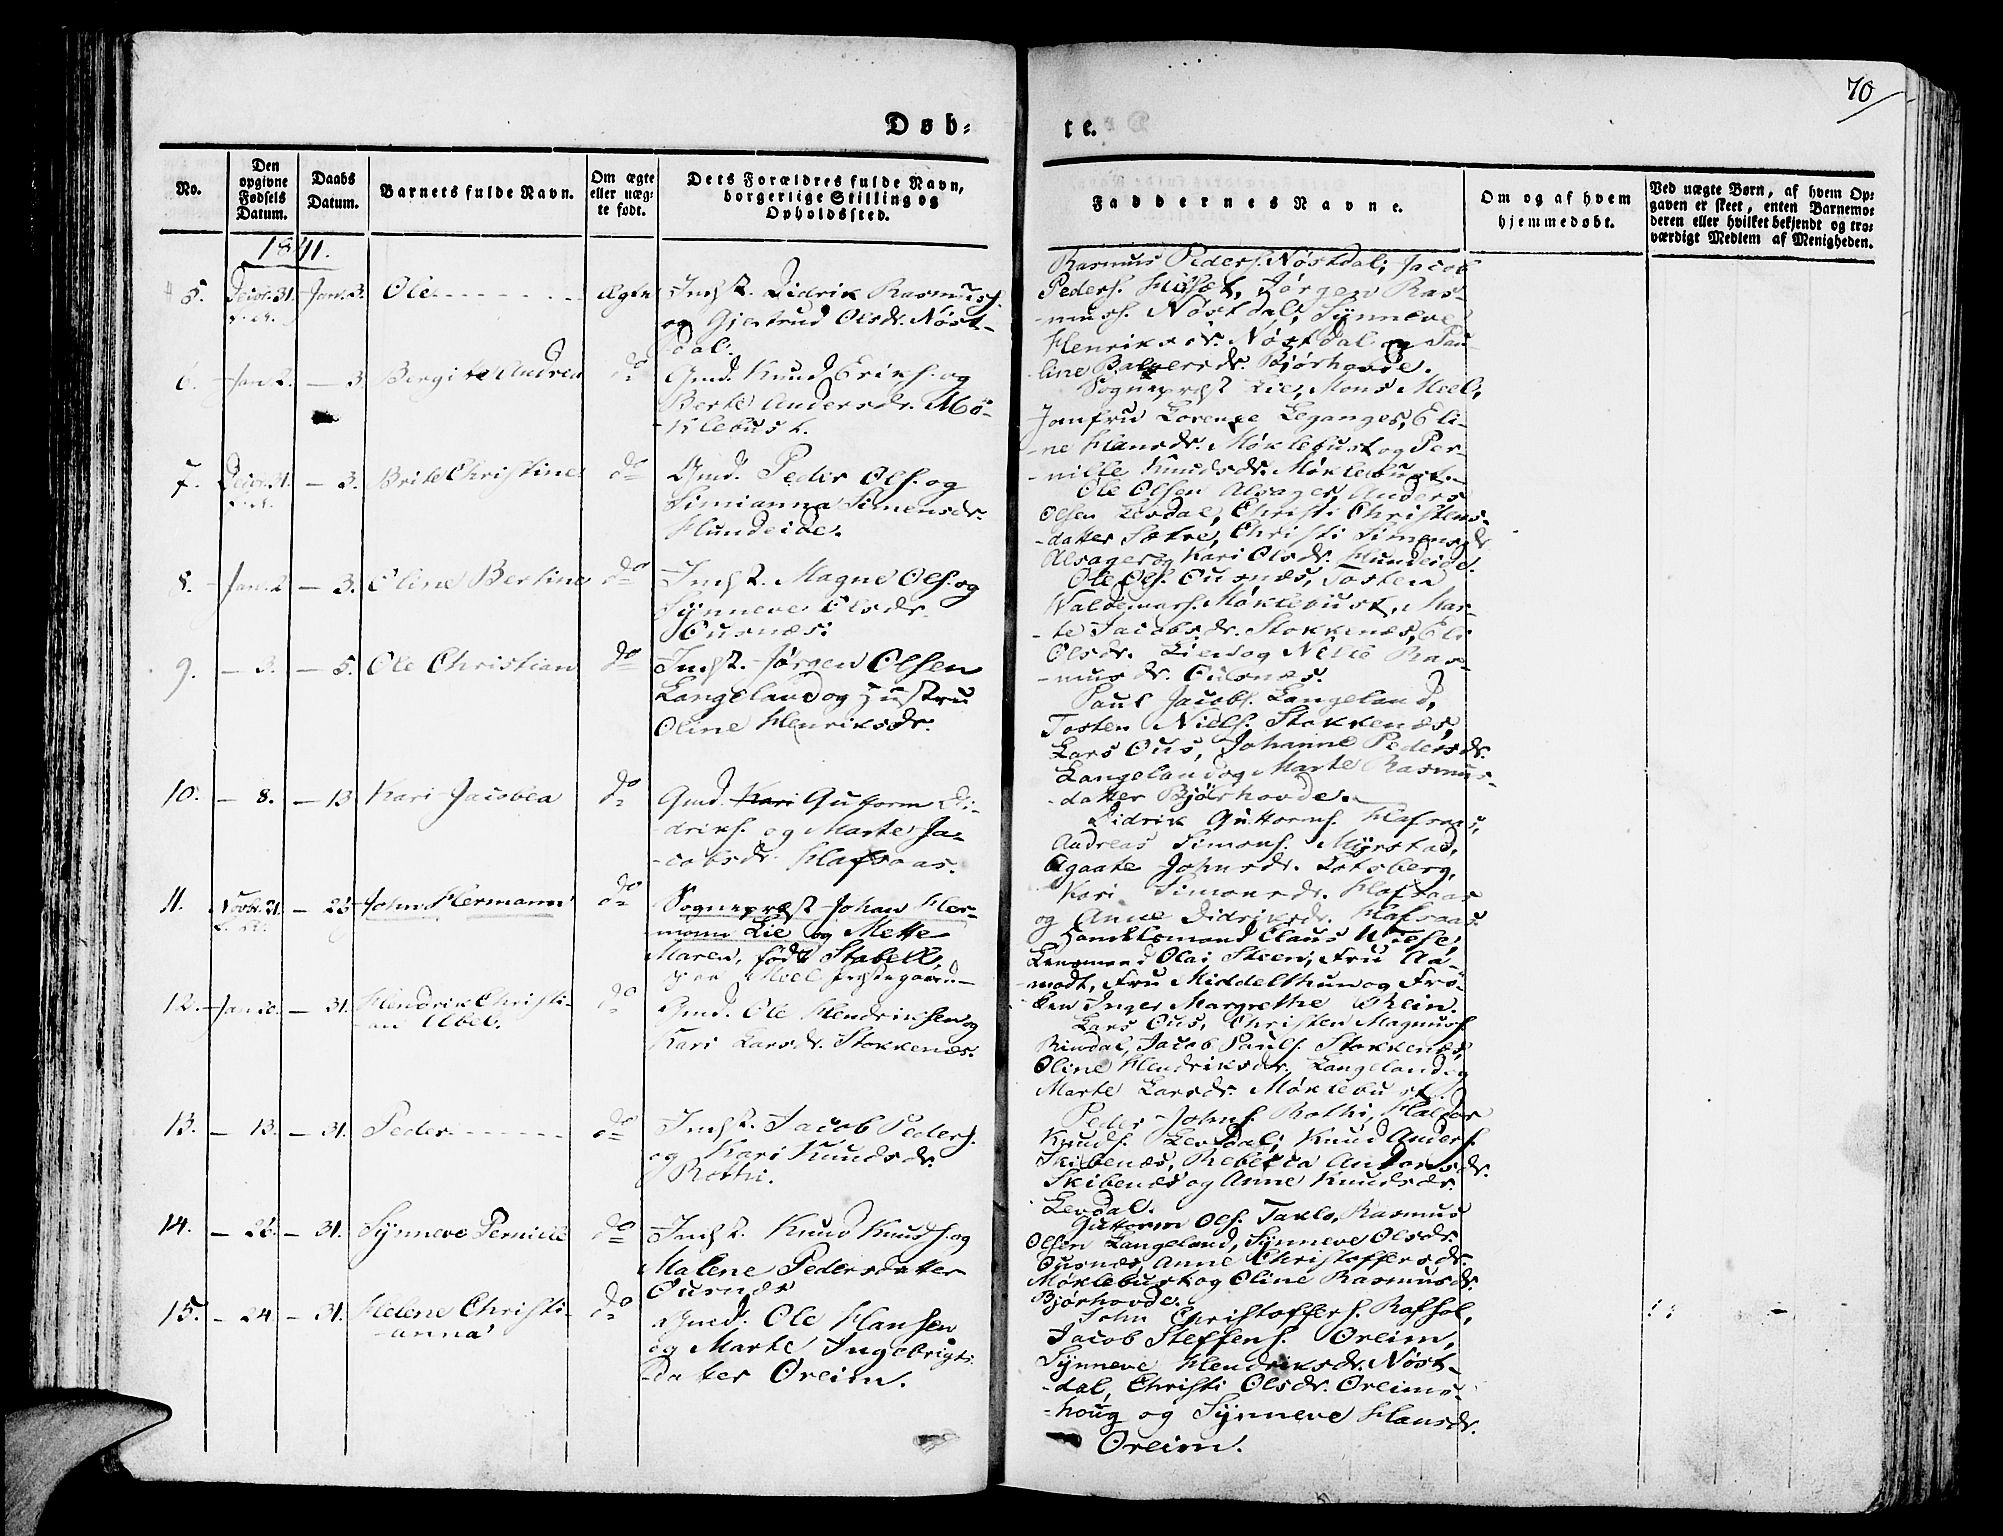 70
Døb-
te.
No.
Den
opgivne
Fødsels
Datum.
Daabs
Datum.
Barnets fulde Navn.
Om ægte
eller uæg-
te født.
Dets Forældres fulde Navn,
borgerlige Stilling og
Opholdssted.
Faddernes Navne.
Om og af hvem
hjemmedøbt.
Ved uægte Børn, af hvem Op-
gaven er skeet, enten Barnemo-
deren eller hvilket bekjendt og tro-
værdigt Medlem af Menigheden.
1841.
5. Decbr. 31. Jan. 3. Ole Ægte Indst. Didrik Rasmuss.
og Gjertrud Olsdr. Nøst-
dal.
Rasmus Peders. Nøstdal, Jacob
Peders. Husæt, Jørgen Ras-
muss. Nøstdal, Synneve
Henriksdr. Nøstdal og Pau-
line Balzersdr. Bjørhovde.
6. Jan. 2. — 3. Bergitte Andrea do Gmd. Knud Eriks. og
Berte Andersdr. Mø-
klebust.
Sognepræst Lie, Mons Meel,
Jomfru Lorense Leganger, Eli-
ne Hansdr. Møklebust og Per-
nille Knudsdr. Møklebust.
7. Decbr. 31. — 3. Brite Christine do Gmd. Peder Ols. og
Simianna Simensdr.
Hundeide.
Ole Olsen Alsager, Anders
Olsen Levdal, Christi Christens-
datter Sætre, Christi Simensdr.
Alsager og Kari Olsdr. Hundeide.
8. Jan. 2 — 3. Oline Bertine do Indst. Magne Ols. og
Synneve Olsdr.
Ousnæs.
Ole Ols. Ousnæs, Tosten
Valdemars. Møklebust, Mar-
te Jacobsdr. Stokkenæs, Eli
Olsdr. Lien og Ras-
musdr. Ousnæs.
9. — 3. — 5. Ole Christian do Indst. Jørgen Olsen
Langeland og Hustru
Oline Henriksdr.
Paul Jacobs. Langeland,
Tosten Niels. Stokkenæs,
Lars Ous, Johanne Pedersdr.
Langeland og Marte Rasmus-
datter Bjørhovde.
10. — 8. — 13 Kari Jacobea do Gmd. Kari Guttorm Di-
driks. og Marte Ja-
cobsdr. Hafsaas.
Didrik Guttorms. Hafsaas,
Andreas Simons. Myrstad,
Agaate Johnsdr. Lotsberg,
Kari Simonsdr. Hafsaas
og Anne Didriksdr. Hafsaas
11. Novbr. 21. — 23 John Hermann do Sognepræst Johan Her-
mann Lie og Mette
Maren, født Stabell,
paa Meel præstegaard
Handelsmand Claus Wiese,
Lensmand Olai Steen, Fru Aa-
modt, Fru Middelthun og Frø-
ken Inger Margrethe Rhein.
12. Jan. 20. — 31. Hendrik Christi-
an Abel. do Gmd. Ole Hendriksen og
Kari Larsdr. Stokkenæs.
Lars Ous, Christen Magnuss.
Rindal, Jacob Pauls. Stokkenæs,
Oline Hendriksdr. Langeland og
Marte Larsdr. Møklebust.
13. — 13. — 31. Peder do Indst. Jacob Peders.
og Kari Knudsdr.
Rothi.
Peder Johns. Rothi, Haldor
Knuds. Levdal, Knud Anders.
Skibenæs, Rebecca Andersdr.
Skibenæs og Anne Knudsdr.
Levdal.
14. — 26 — 31. Synneve Pernille do Indst. Knud Knuds. og
Malene Pedersdatter
Ousnæs
Guttorm Ols. Taklo, Rasmus
Olsen Langeland, Synneve Olsdr.
Ousnæs, Anne Christoffersdr.
Møklebust og Oline Rasmusdr.
Bjørhovde.
15. — 24 — 31. Helene Christi-
anna do Gmd. Ole Hansen
og Marte Ingebrigts-
datter Øreim.
John Christoffers. Rafsol,
Jacob Steffens. Øreim,
Synneve Hendriksdr. Nøst-
dal, Christi Olsdr. Øreims-
houg og Synneve Hansdr.
Øreim.